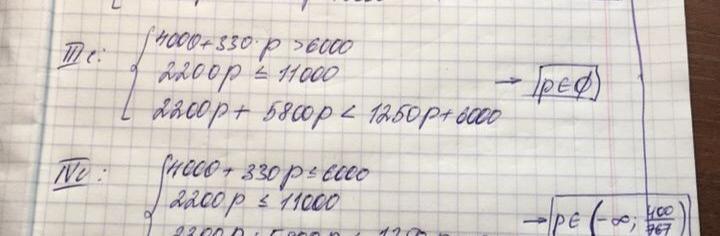 IIIс:
4000+330·p>6000
2200p ≤ 11000
2200p + 5800p < 1250p+6000
→ p∈∅
IVс:
4000+330p≤6000
2200p ≤ 11000
→ p∈(-∞; 400/767)